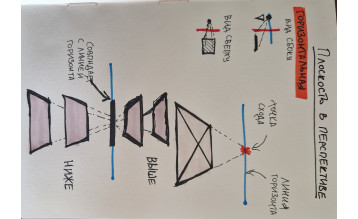 ПЛОСКОСТЬ В ПЕРСПЕКТИВЕ
ГОРИЗОНТАЛЬНАЯ
ВИД СБОКУ
ВИД СВЕРХУ
ТОЧКА
СХОДА
ЛИНИЯ
ГОРИЗОНТА
СОВПАДАЕТ
С ЛИНИЕЙ
ГОРИЗОНТА
ВЫШЕ
НИЖЕ